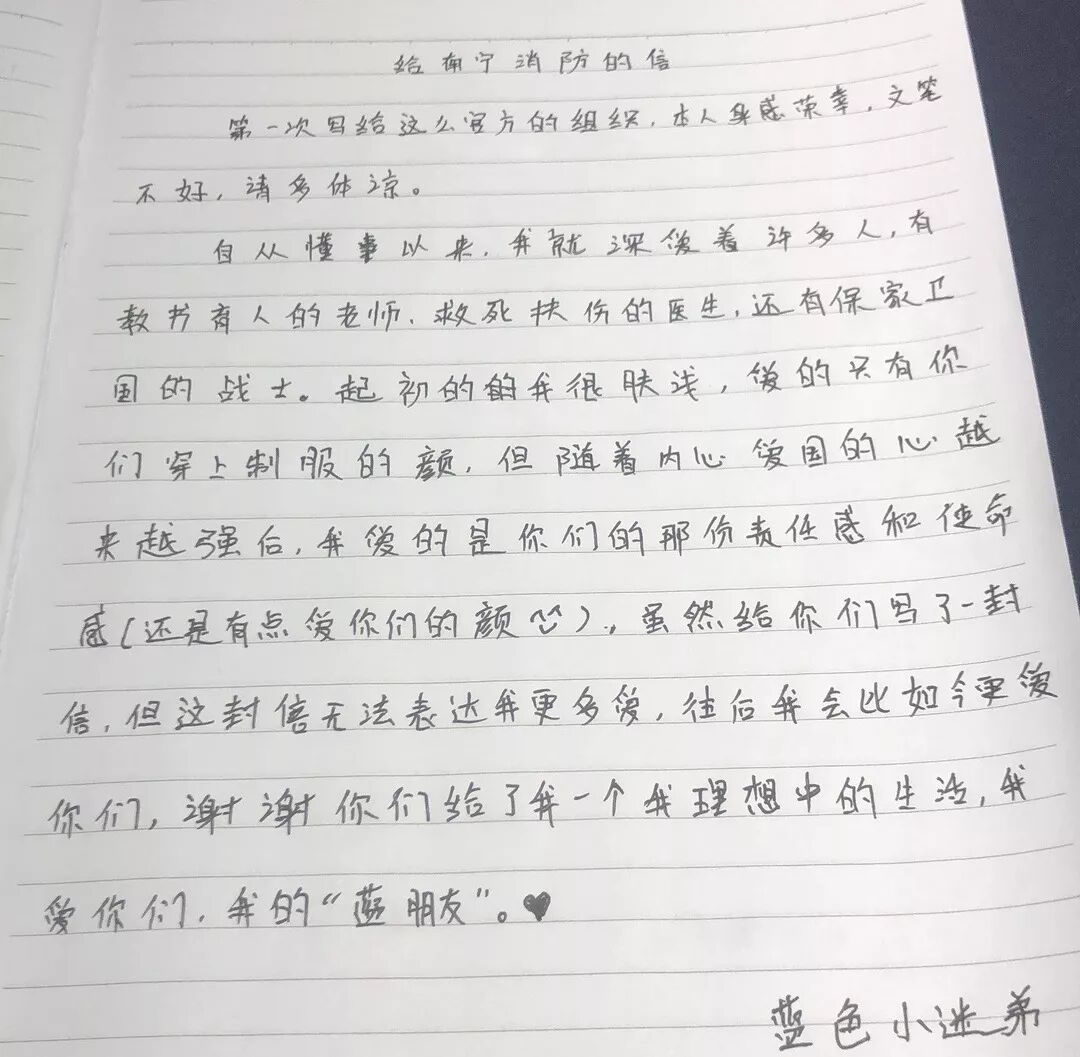 给南宁消防的信
第一次写给这么官方的组织，本人身感荣幸，文笔
不好，请多体凉。
自从懂事以来，我就深爱着许多人，有
教书育人的老师、救死扶伤的医生，还有保家卫
国的战士。起初的我很肤浅，爱的只有你
们穿上制服的颜，但随着内心爱国的心越
来越强后，我爱的是你们的那份责任感和使命
感（还是有点爱你们的颜），虽然给你们写了一封
信，但这封信无法表达我更多爱，往后我会比如今更爱
你们，谢谢你们给了我一个我理想中的生活，我
爱你们，我的“蓝朋友”。♥
蓝色小迷弟